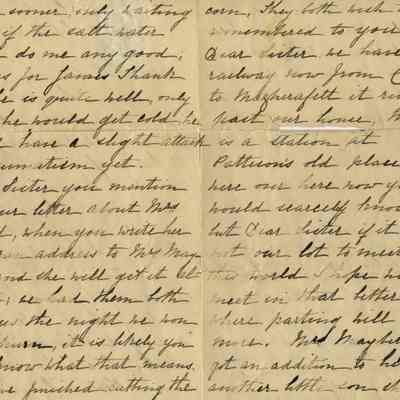 sooner, only waiting
if the salt water
do me any good,
as for James Thank
he is quite well, only
he would get cold he
have a slight attack
rheumatism yet.
Sister you mention
letter about Mrs
when you write her
address to Mrs May
and she will get it
we had them both
the night we won
churn, it is likely you
know what that means.
we finished cutting the
corn, They both wish
remembered to you
Dear Sister we have
railway now from C
to Magherafelt it
past our house,
is a station at
Pattersons old place
here our here now
would scarcely know
but Dear Sister if it
not our lot to meet
this world I hope we
meet in that better
where parting will
more. Mrs Maybe
got an addition to
another little son